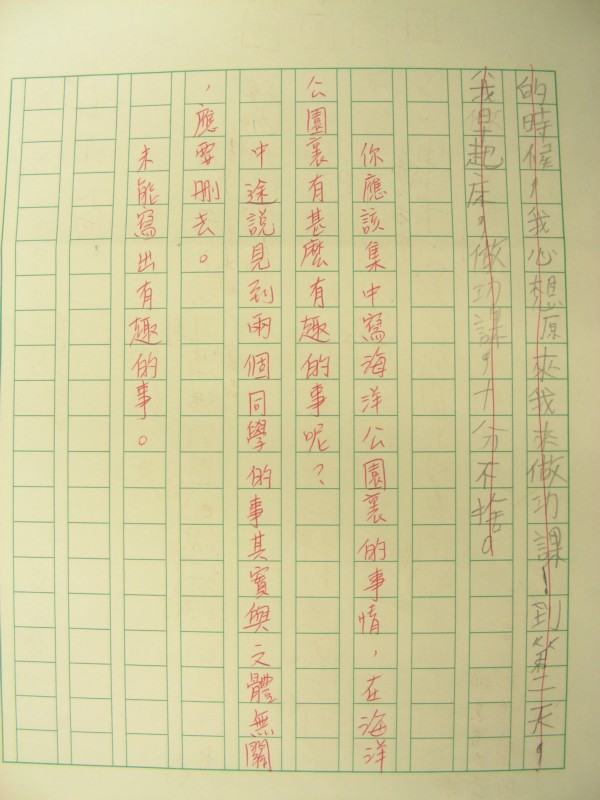 的時候，我心想原來我未做功課！到第二天，
我早起床，做功課，十分不捨。
你應該集中寫海洋公園裏的事情，在海洋
公園裏有甚麼有趣的事呢？
中途說見到兩個同學的事其實與文體無關
，應要刪去。
未能寫出有趣的事。